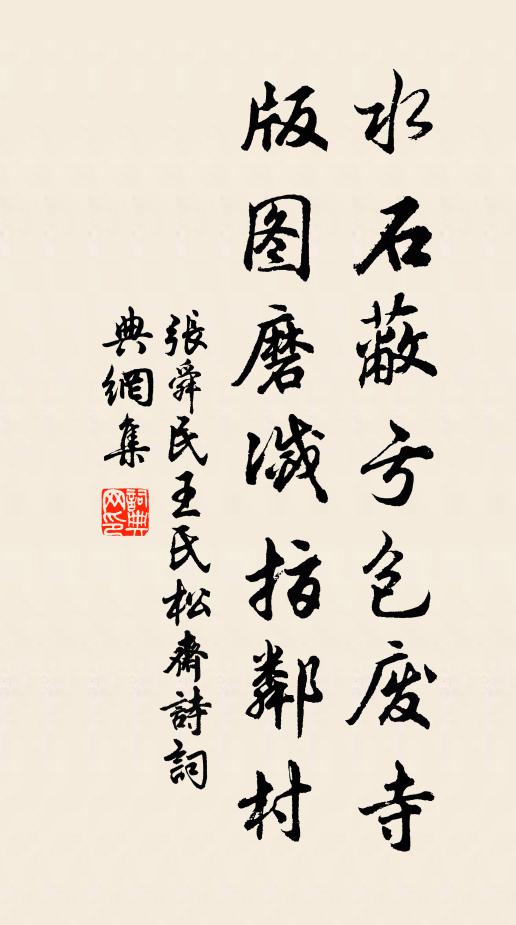 水石蔽亏包废寺
版图磨滅指鄰村
張舜民王氏松齋詩詞
典網集
詞典網印